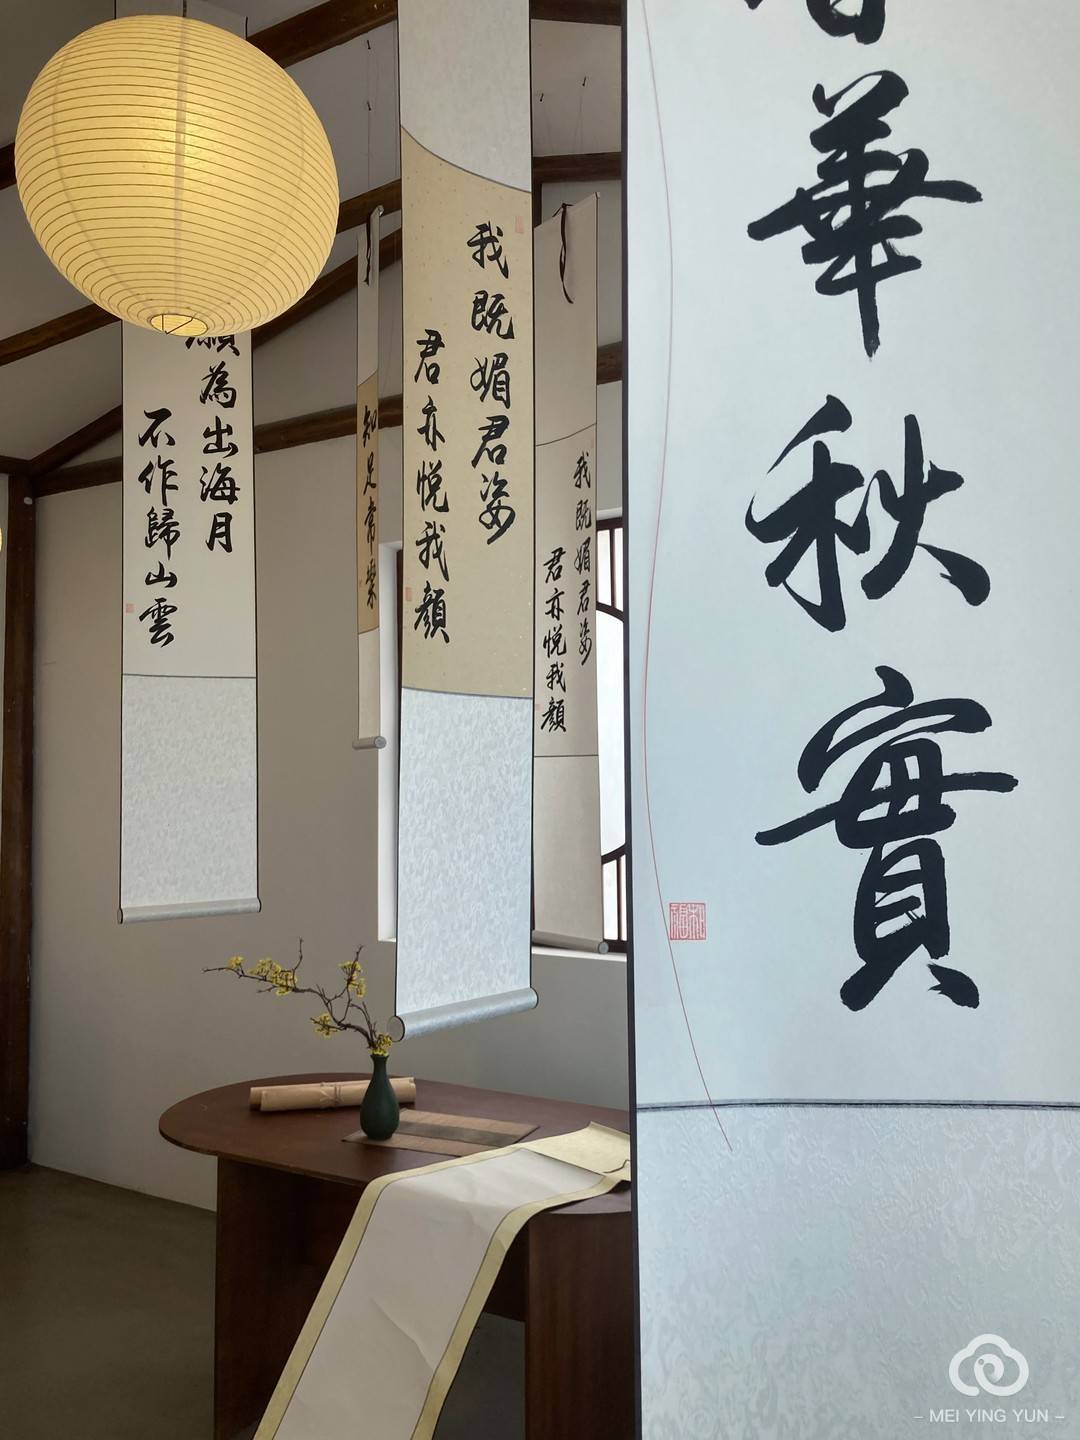 華秋實
我既媚君姿
君亦悦我顔
我既媚君姿
君亦悦我顔
知足常樂
願為出海月
不作歸山雲
- MEI YING YUN -